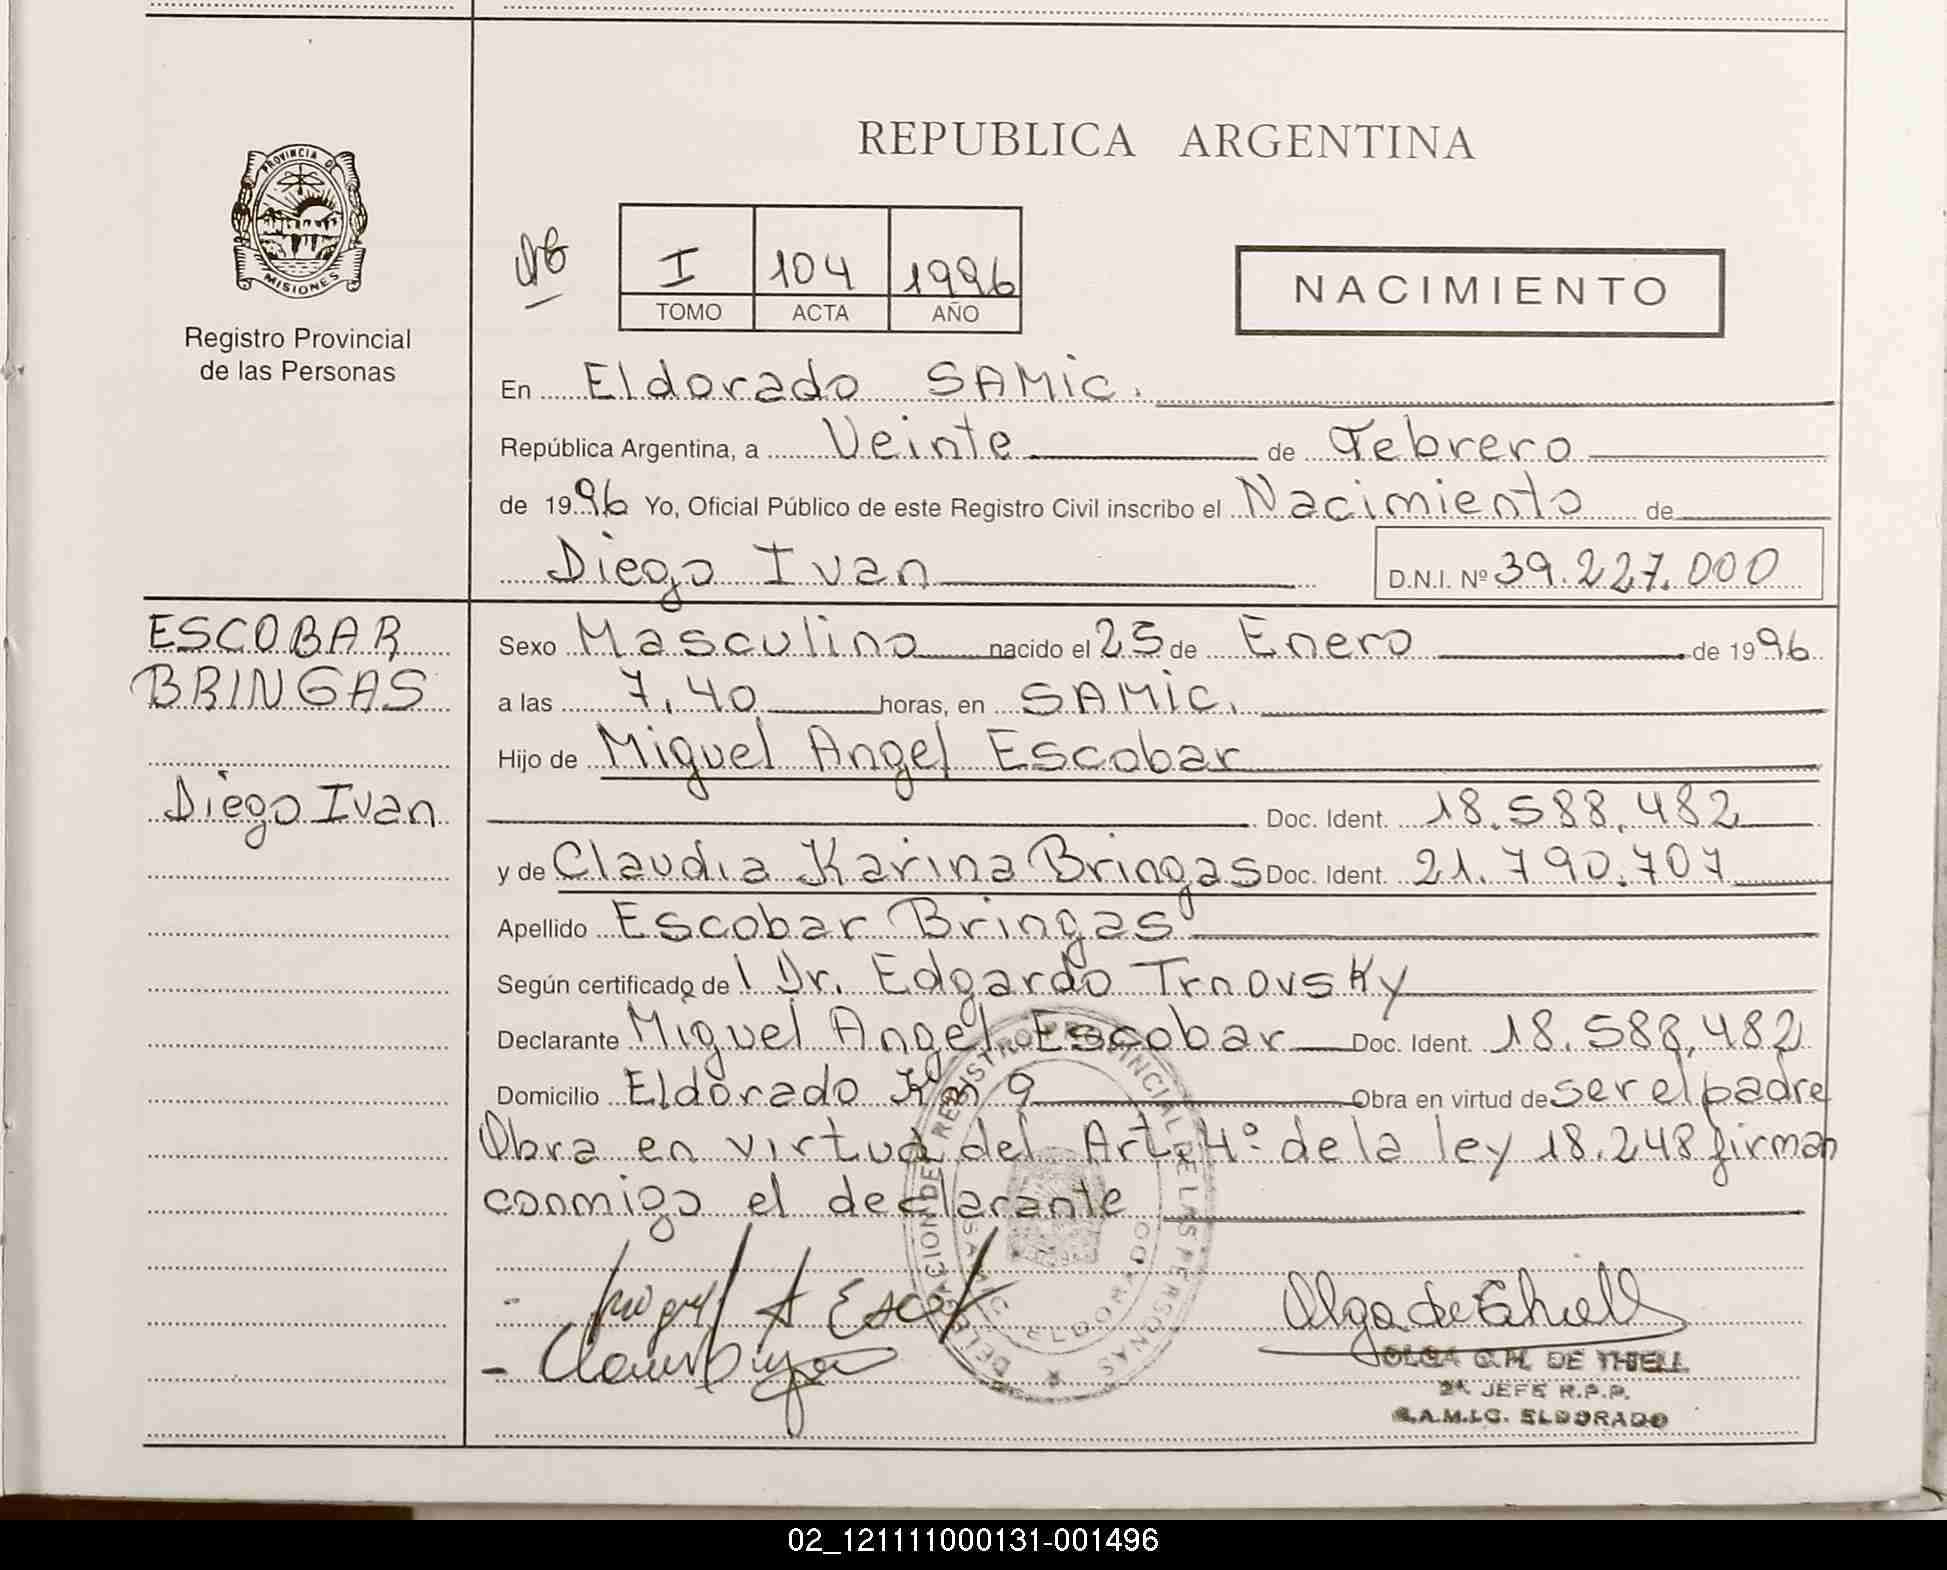 REPUBLICA ARGENTINA
PROVINCIA DE
MISIONES
Registro Provincial
de las Personas
I 104 1996
TOMO ACTA AÑO
NACIMIENTO
En Eldorado SAMic.
República Argentina, a Veinte de Febrero
de 1996 Yo, Oficial Público de este Registro Civil inscribo el Nacimiento de
Diego Ivan D.N.I. Nº 39.227.000
ESCOBAR
BRINGAS
Diego Ivan
Sexo Masculino nacido el 25 de Enero de 1996
a las 7,40 horas, en SAMiC.
Hijo de Miguel Angel Escobar
Doc. Ident. 18.588.482
y de Claudia Karina Bringas Doc. Ident. 21.790.707
Apellido Escobar Bringas
Según certificado de l Dr. Edgardo Trnovsky
Declarante Miguel Angel Escobar Doc. Ident. 18.588,482
Domicilio Eldorado Km 9 Obra en virtud de ser el padre
Obra en virtud del Art. 4º de la ley 18.248 firman
conmigo el declarante
DELEGACION DE REGISTRO PROVINCIAL DE LAS PERSONAS
S.A.M.I.C. ELDORADO
Miguel A Escob
Olga de Thiell
OLGA G.H. DE THIELL
2ª JEFE R.P.P.
S.A.M.I.C. ELDORADO
02_121111000131-001496